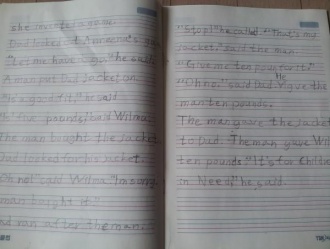 she
Dad looked at
"Let me have a go," he said.
A man put Dad Jacket on.
"Is a good fit" he said.
"five pounds," said Wilma.
The man bought the Jacket.
Dad looked for his Jacket.
"Oh no!" said Wilma.
man bought it"
Dad ran after the man.
"Stop!" he called. "That's my
Jacket." said the man.
"Give me ten pounds for it."
"Oh no." said Dad. He give the
man ten pounds.
The man gave the Jacket
to Dad. The man gave Wil
ten pounds "It's for Children
in Need," he said.